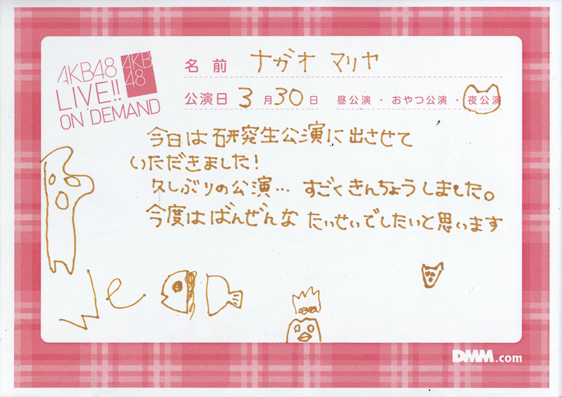 AKB48
LIVE!!
ON DEMAND
AKB
48
名前 ナガオ マリヤ
公演日 3月30日 昼公演・おやつ公演・夜公演
今日は研究生公演に出させて
いただきました！
久しぶりの公演… すごくきんちょうしました。
今度はばんぜんな たいせいでしたいと思います
DMM.com